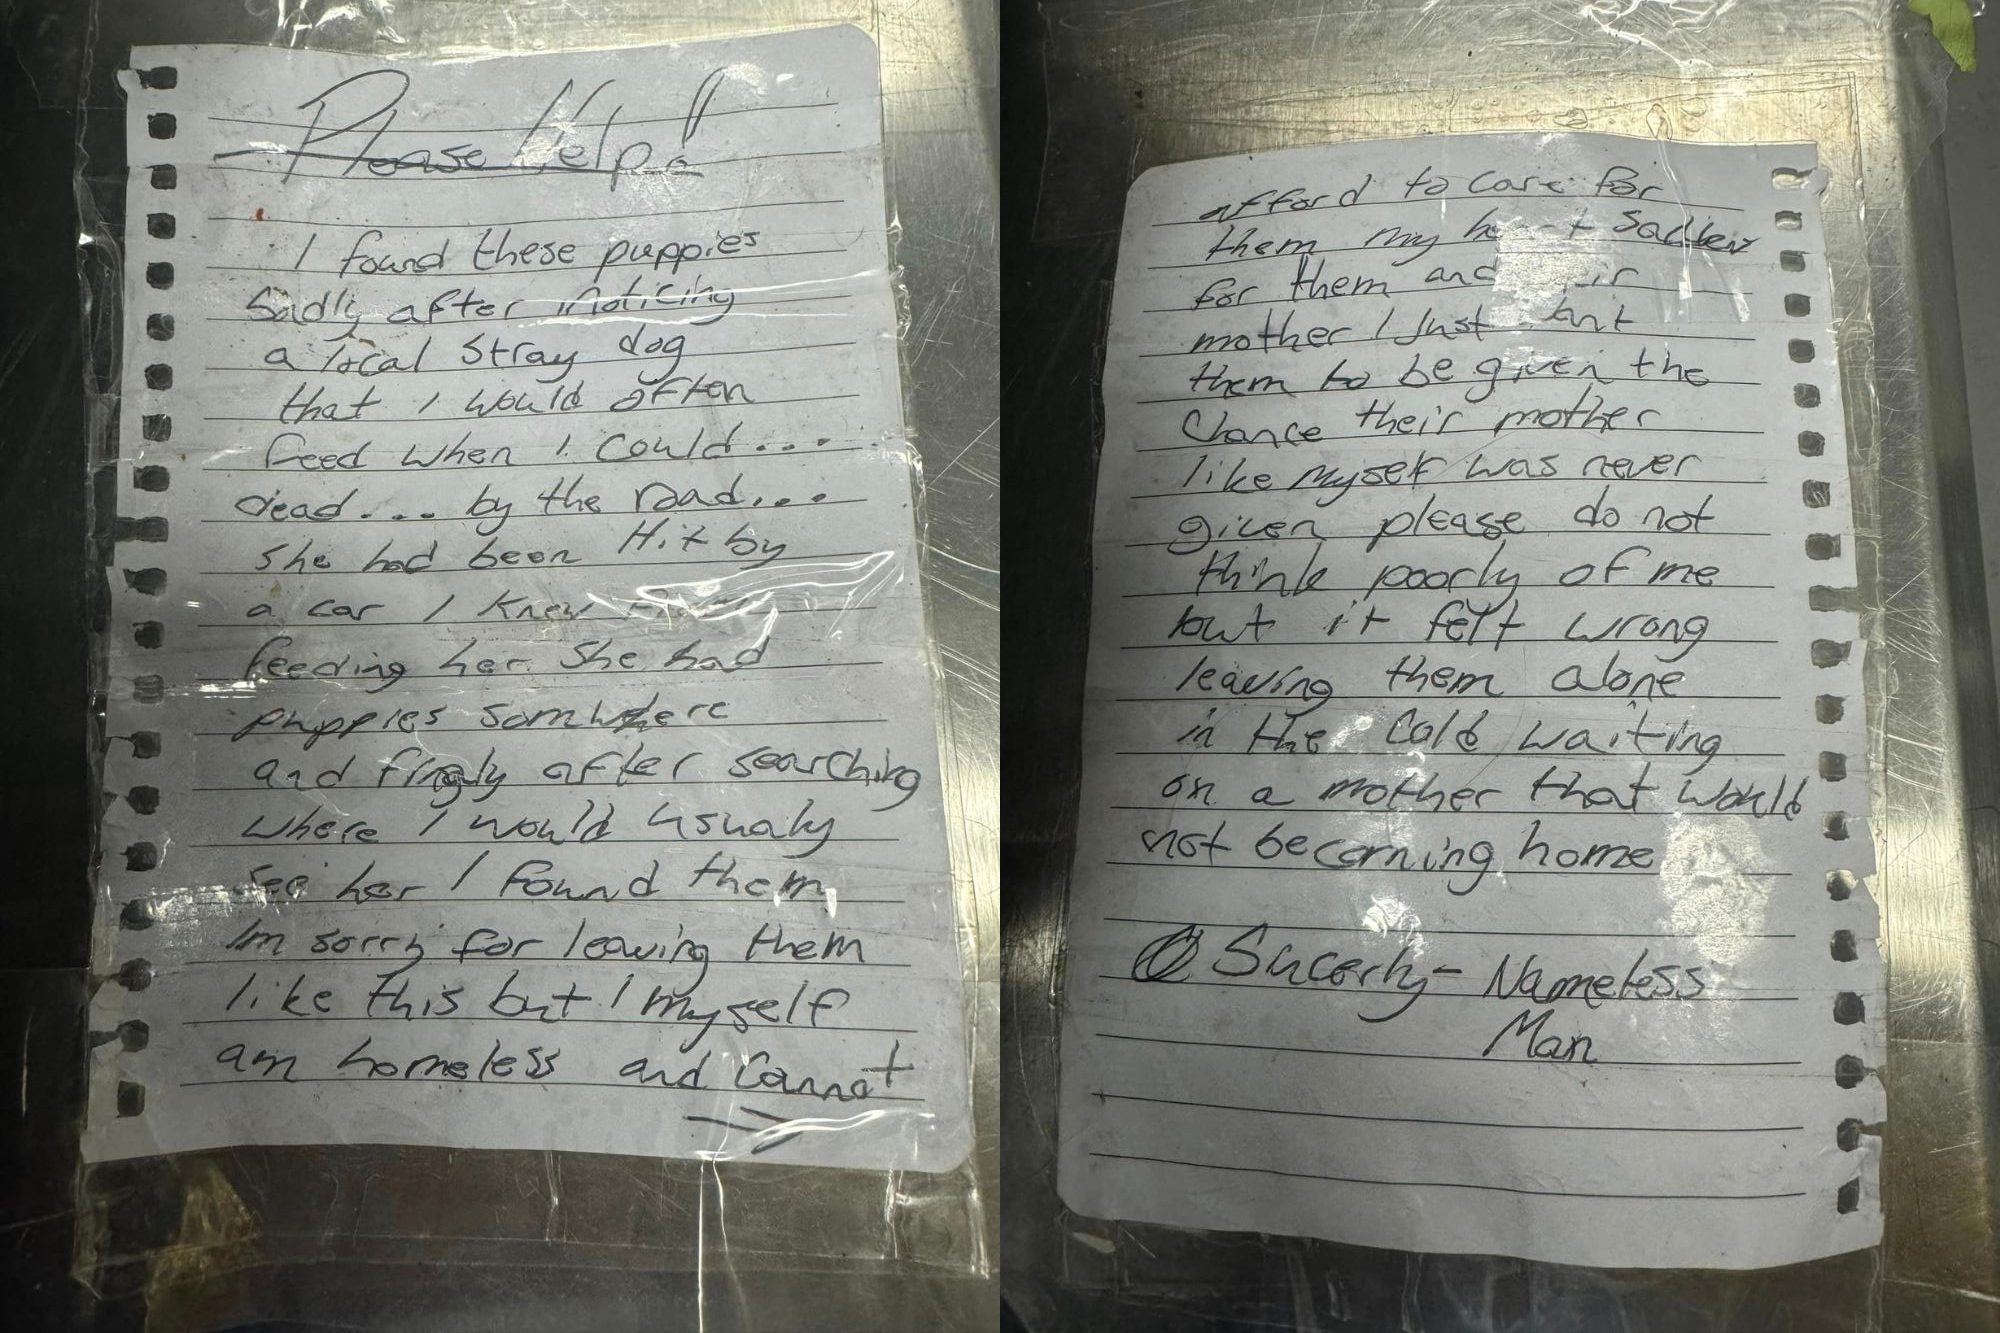 Please Help!
I found these puppies
sadly after noticing
a local stray dog
that I would often
feed when I could...
dead... by the road...
she had been Hit by
a car I knew from
feeding her she had
puppies somwhere
and finaly after searching
where I would usualy
see her I found them
Im sorry for leaving them
like this but I myself
am homeless and Cannot
afford to care for
them my heart
for them and their
mother I Just want
them to be given the
Chance their mother
like myself was never
given please do not
think poorly of me
but it felt wrong
leaving them alone
in the cold waiting
on a mother that would
not be coming home
Sincerly - Nameless
Man